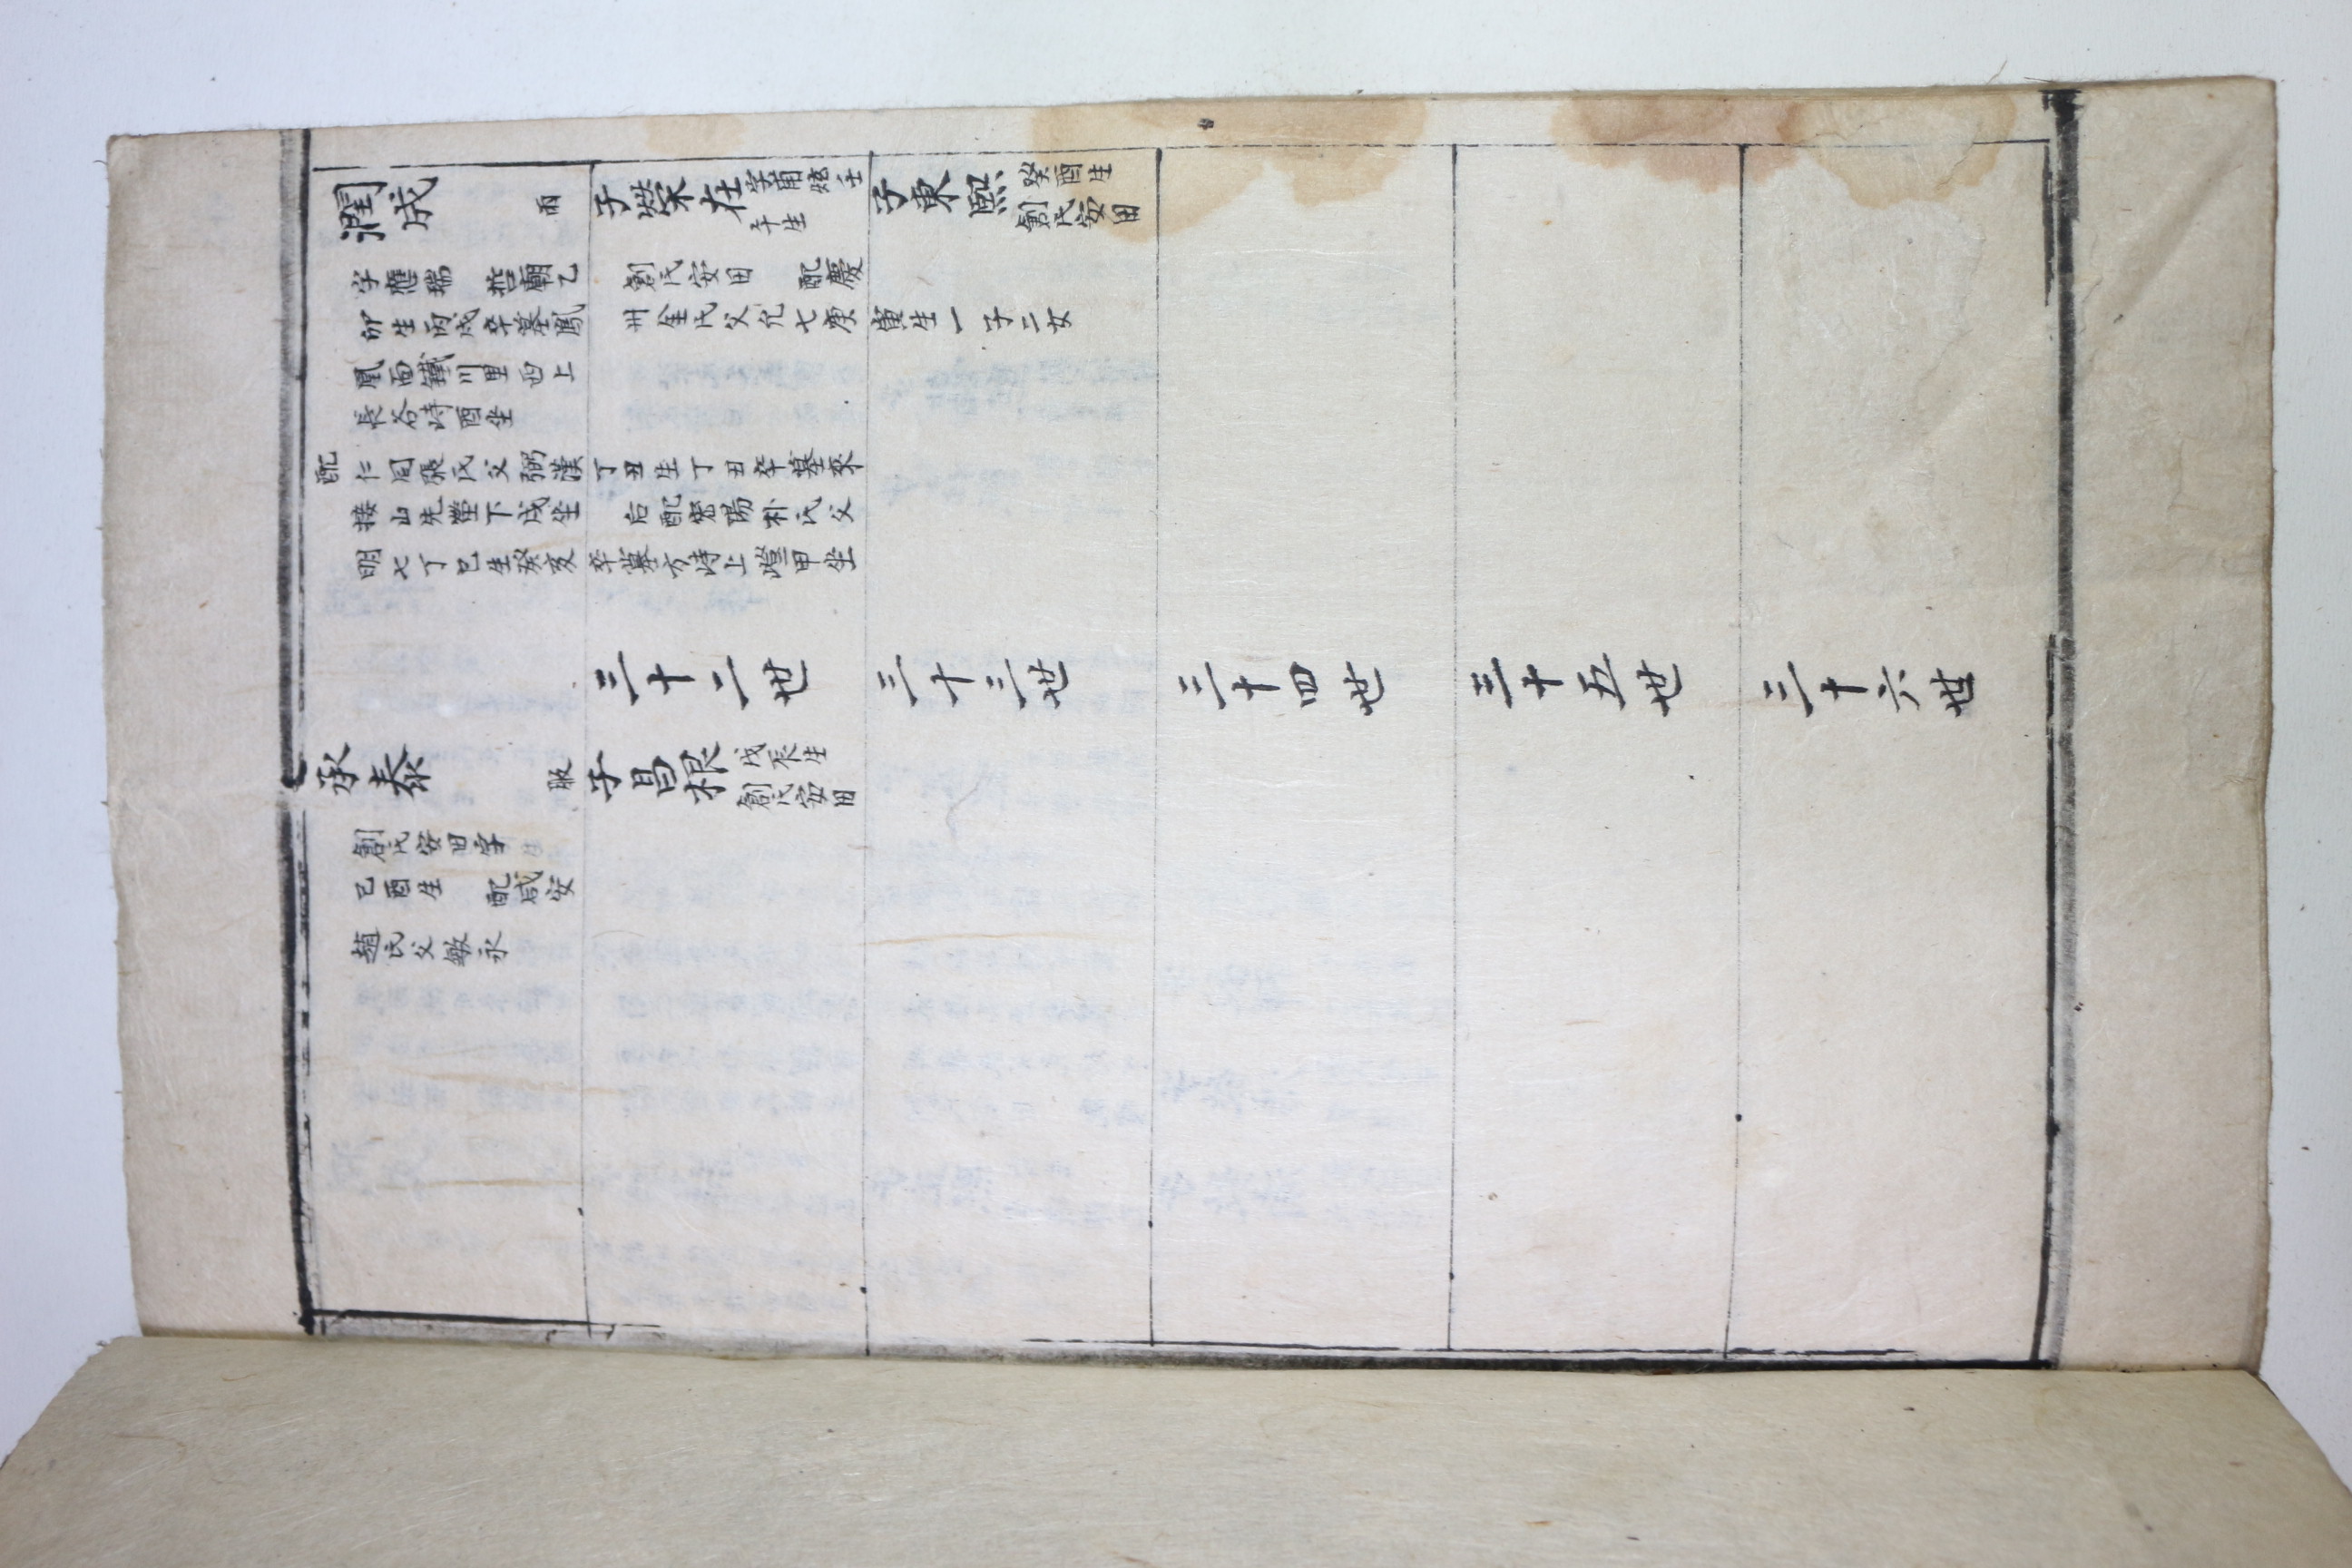 潤成 雨
字應瑞 哲廟乙
卯生丙戌卒墓鳳
凰面鐵川里西上
長谷峙酉坐
子榮在 字甫炫壬
午生
創氏安田 配慶
州金氏父允七庚寅生一子二女
子東熙 癸酉生
創氏安田
配仁同張氏父弼漢丁丑生丁丑卒墓來
接山先塋下戌坐 后配密陽朴氏父
明七丁巳生癸亥卒墓方峙上嶝甲坐
三十二世
三十三世
三十四世
三十五世
三十六世
承泰 服
創氏安田字
己酉生 配咸安
趙氏父敏永
子昌根 戊辰生
創氏安田